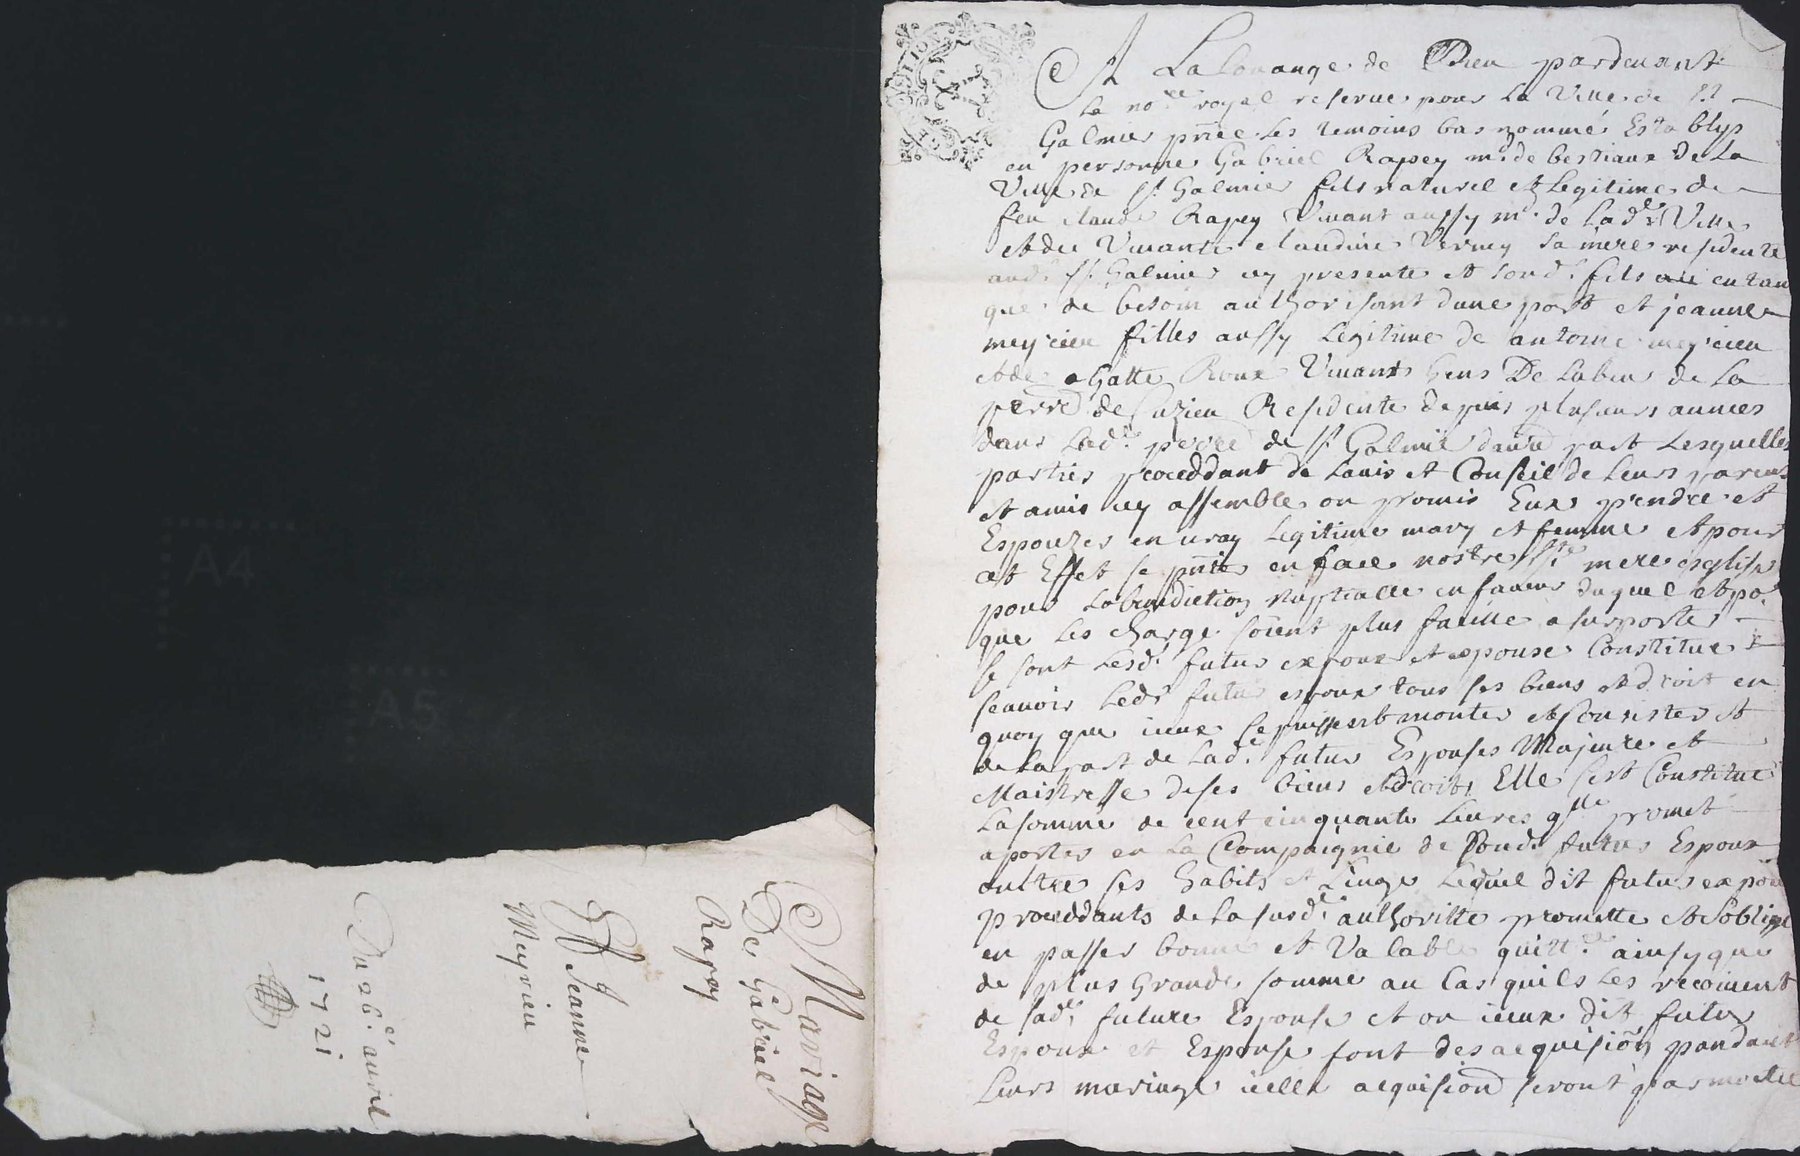 A La Louange de Dieu pardevant
Le no.re royal reserve pour La Ville de St
Galmier pnce les temoins bas nommé Establys
en personne Gabriel Rapey md de bestiaux de La
Ville de St Galmier fils naturel et Legitime de
feu claude Rapey Vivant aussy md de Lad.e Ville
et de Vivante claudine Verney sa mere residente
aud. St Galmier icy presente et sond. fils en tan
que de besoin authorisant dune part et jeanne
meyrieu filles aussy Legitime de antoine meyrieu
et de agatte Roux Vivants Gens De Labeur de La
perr.e de Cuzieu Residente depuis plusieurs annees
dans Lad.e perr.e de St Galmie dautre part Lesquelles
parties proceddant de Lavis et Conseil de Leurs parens
et amis icy assemble on promis Eux prendre et
Espouzer en vray Legitime mary et femme et pour
cet Effet se pnter en face nostre Ste mere esglise
pour La benediction Nuptialle en faveur duquel et po.
que Les charge soient plus facille a suporter
se sont Lesd. futur expoux et expouse Constitue
scavoir Led. futur expoux tous ses biens et droit en
quoy que iceux se puissent monter et Consister et
de La part de Lad. futur Espouse Majeure et
Maistresse de ses biens et droits Elle sest Constitué
La somme de cent cinquante Livres qlle promet
aporter en La Compaignie de Soud. futur Espoux
oultre ses habits et Linge Lequel dit futur expoux
proceddants de La susd.e authoritte promette et soblige
en passer bonne et Valable quitt.ce ainsy que
de plus Grande somme au Cas quils Les recoivent
de Lad.e future Espouse et ou iceux dit futur
Espoux et Espouse font des acquision pandant
Leurs mariage icelle acquision seront par moitié
Mariage
De Gabriel
Rapey
Et Jeanne
Meyrieu
Du 26.e avril
1721